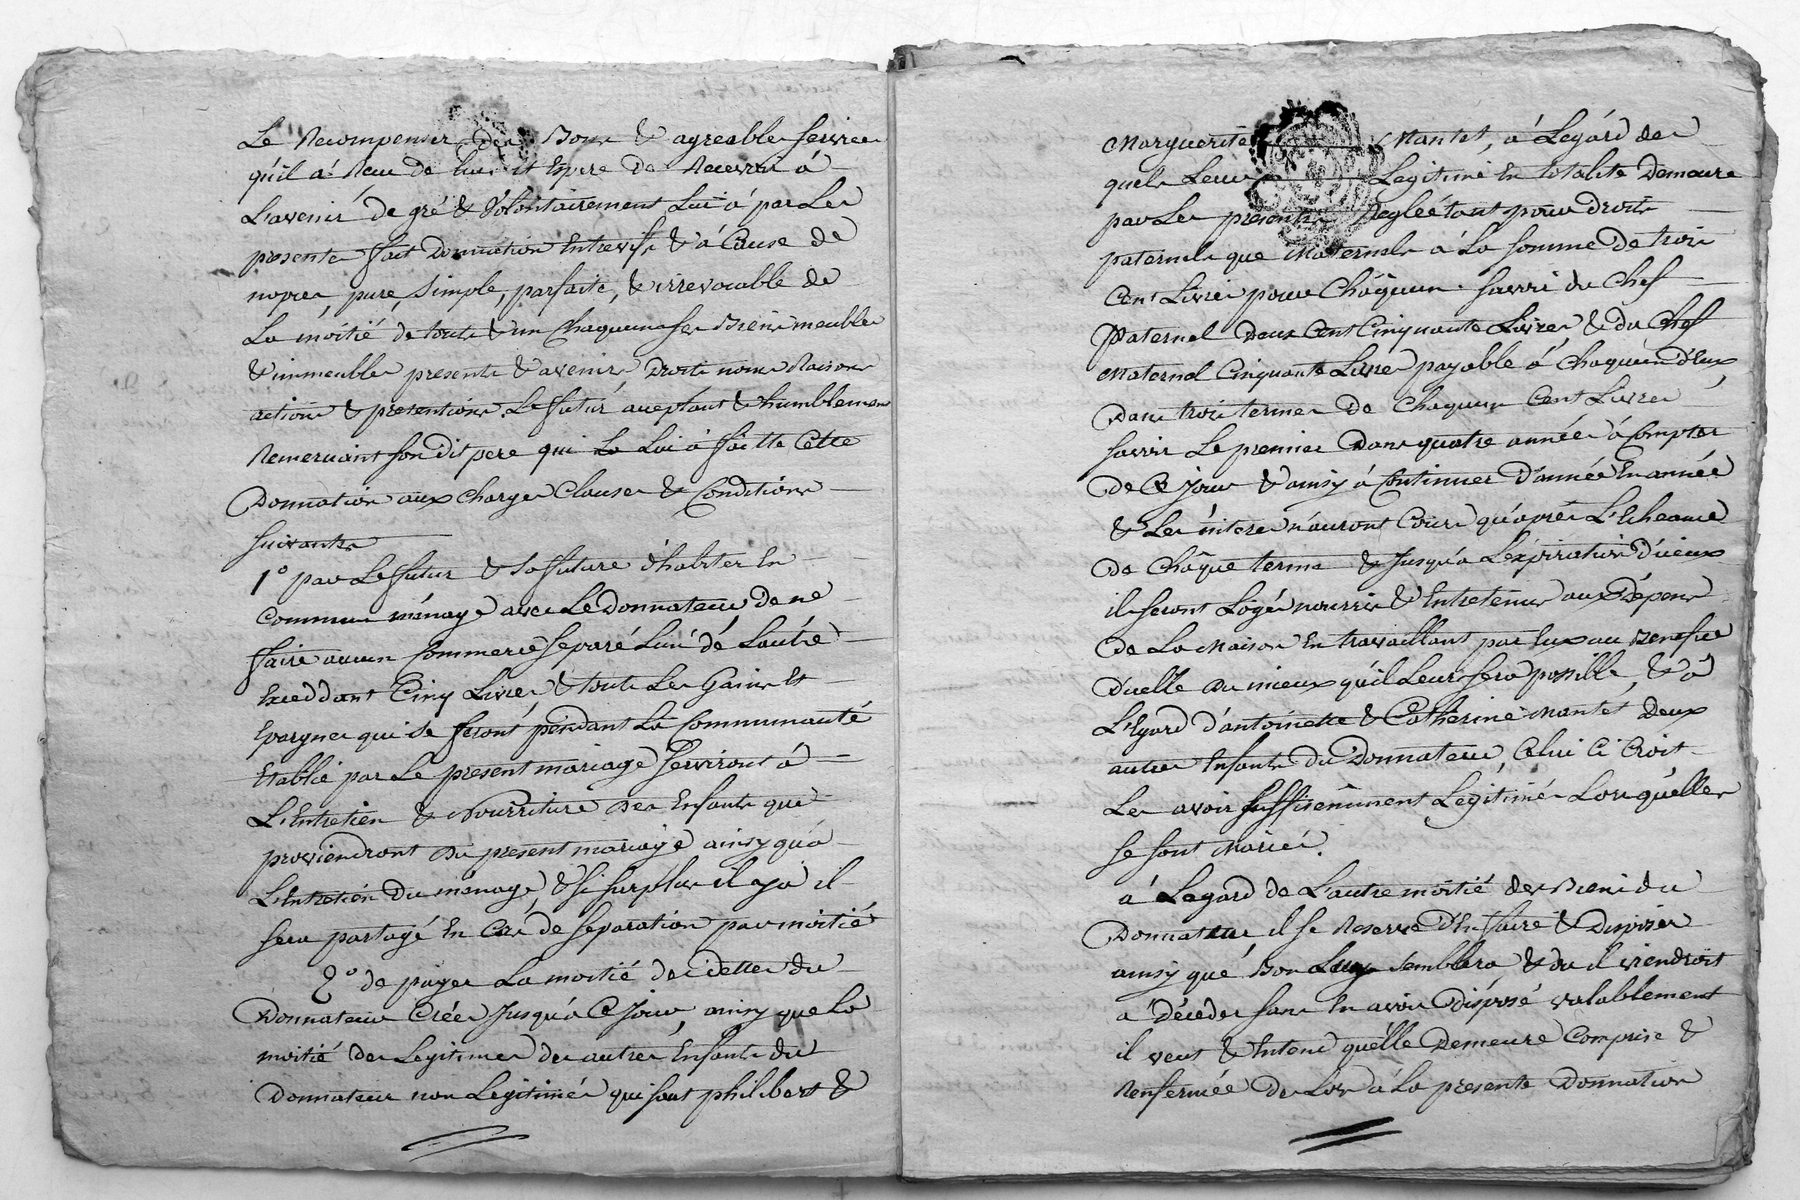 Le Recompenser des Bons & agreables services
qu'il a Reçu de lui et Espere de Recevoir à
L'avenir de gré & volontairement Lui à par Les
presentes fait Donnation Entrevifs & à Cause de
nopces pure, simple, parfaite, & irrevocable de
La moitié de touts & un Chaqueun ses Biens meubles
& immeubles presents & avenirs Droits noms Raisons
actions & pretentions. Le futur aceptant & humblement
Remerciant son dit pere qui La Lui à faitte Cette
Donnation aux charges Clauses & Conditions
suivantes
1° par Le futur & sa future d'habiter En
Commun ménage avec Le Donnateur, de ne
faire aucun Commerce separé L'un de L'autre
Exceddant Cinq Livres, & touts Les Gains Et
Epargnes qui se feront pendant La Communauté
Etablie par Le present mariage serviront à
L'Entretien & Nourriture Des Enfants qui
proviendront Du present mariage ainsy qu'a
L'Entretien Du ménage, & si surplus il y a il
sera partagé En Cas de separation par moitié
2° de payer La moitié des dettes du
Donnateur Créés Jusqu'a Ce Jour, ainsy que La
moitié des Legitimes des autres Enfants du
Donnateur non Legitimés qui sont philibert &
Marguerite Mantet, à L'egard des
quels Leur Legitime En totalité Demeure
par Les presentes Reglée tant pour Droits
paternels que Maternels à La somme De trois
Cent Livres pour Chaqueun. savoir du Chef
Paternel Deux Cent Cinquante Livres, & du Chef
Maternel Cinquante Livres payable à Chaqueun d'Eux
Dans trois termes De Chaqueun Cent Livres
savoir Le premier Dans quatre années à Compter
De Ce Jour & ainsy à Continuer D'année En année
& Les interes n'auront Cours qu'après L'Echeance
De Châque terme & Jusqu'a L'expiration d'iceux
ils seront Logés nourris & Entretenus aux Dépens
De La Maison En travaillant par Eux au Benefice
D'icelle Du mieux qu'il Leur sera possible, & à
L'Egard d'antoinette & Catherine Mantet Deux
autres Enfants du Donnateur, Celui Ci Croit
Les avoir suffisemment Legitimés Lorsqu'elles
se sont Mariés.
à L'egard de L'autre moitié des Biens du
Donnateur il se Reserve D'En faire & Disposer
ainsy que Bon Luy semblera & ou il viendroit
a Déceder sans En avoir Disposé valablement
il veut & Entend qu'elle Demeure Comprise &
Renfermée De Lors à La presente Donnation